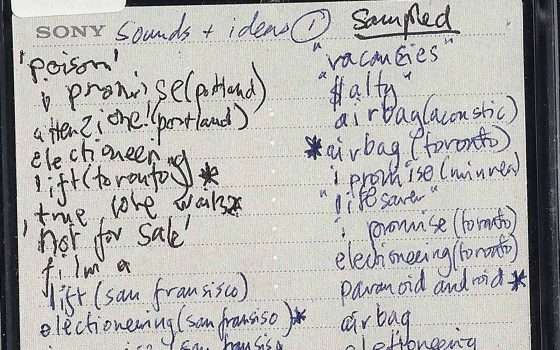 SONY sounds + ideas ① sampled
'poison'
i promise (portland)
attenzione! (portland)
electioneering
lift (toronto) *
true love waits*
'not for sale'
film a
lift (san fransisco)
electioneering (san fransiso) *
"vacancies"
"$alty"
airbag (acoustic)
*airbag (toronto)
i promise (minnea)
"lifesaver"
i promise (toronto)
electioneering (toronto)
paranoid android *
airbag